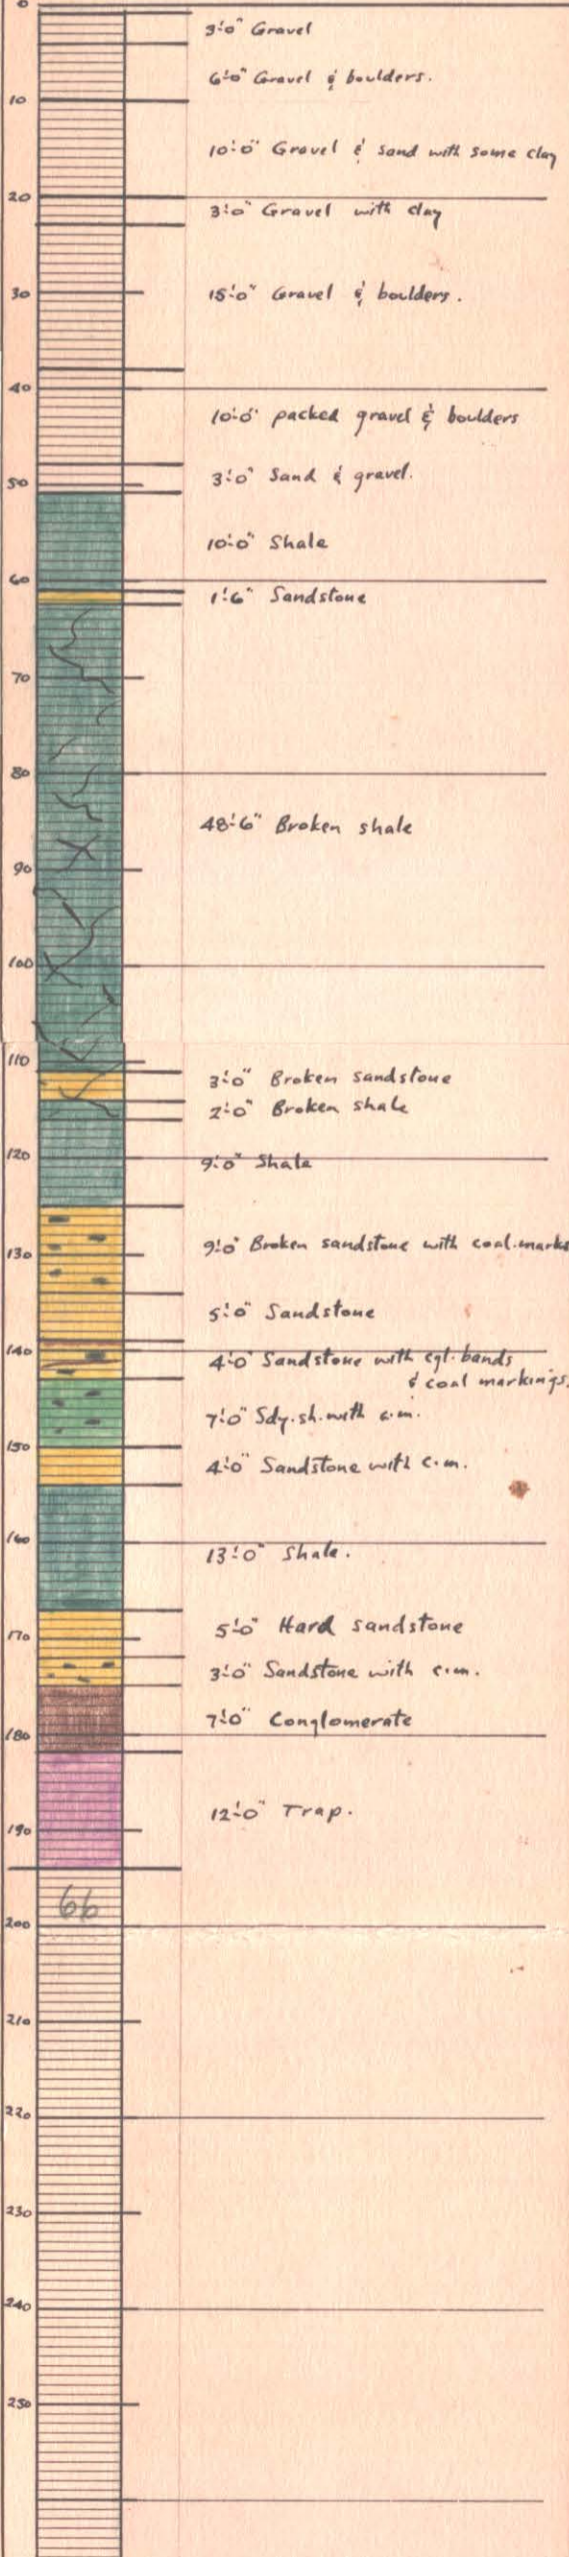 0
3'0" Gravel
6'0" Gravel & boulders.
10
10'0" Gravel & sand with some clay
20
3'0" Gravel with clay
30
15'0" Gravel & boulders.
40
10'0" packed gravel & boulders
3'0" Sand & gravel.
50
10'0" Shale
60
1'6" Sandstone
70
80
48'6" Broken shale
90
100
110
3'0" Broken sandstone
2'0" Broken shale
120
9'0" Shale
130
9'0" Broken sandstone with coal.marks
5'0" Sandstone
140
4'0" Sandstone with cgl. bands
& coal markings.
7'0" Sdy. sh. with c.m.
150
4'0" Sandstone with c.m.
160
13'0" Shale.
170
5'0" Hard sandstone
3'0" Sandstone with c.m.
7'0" Conglomerate
180
12'0" Trap.
190
66
200
210
220
230
240
250